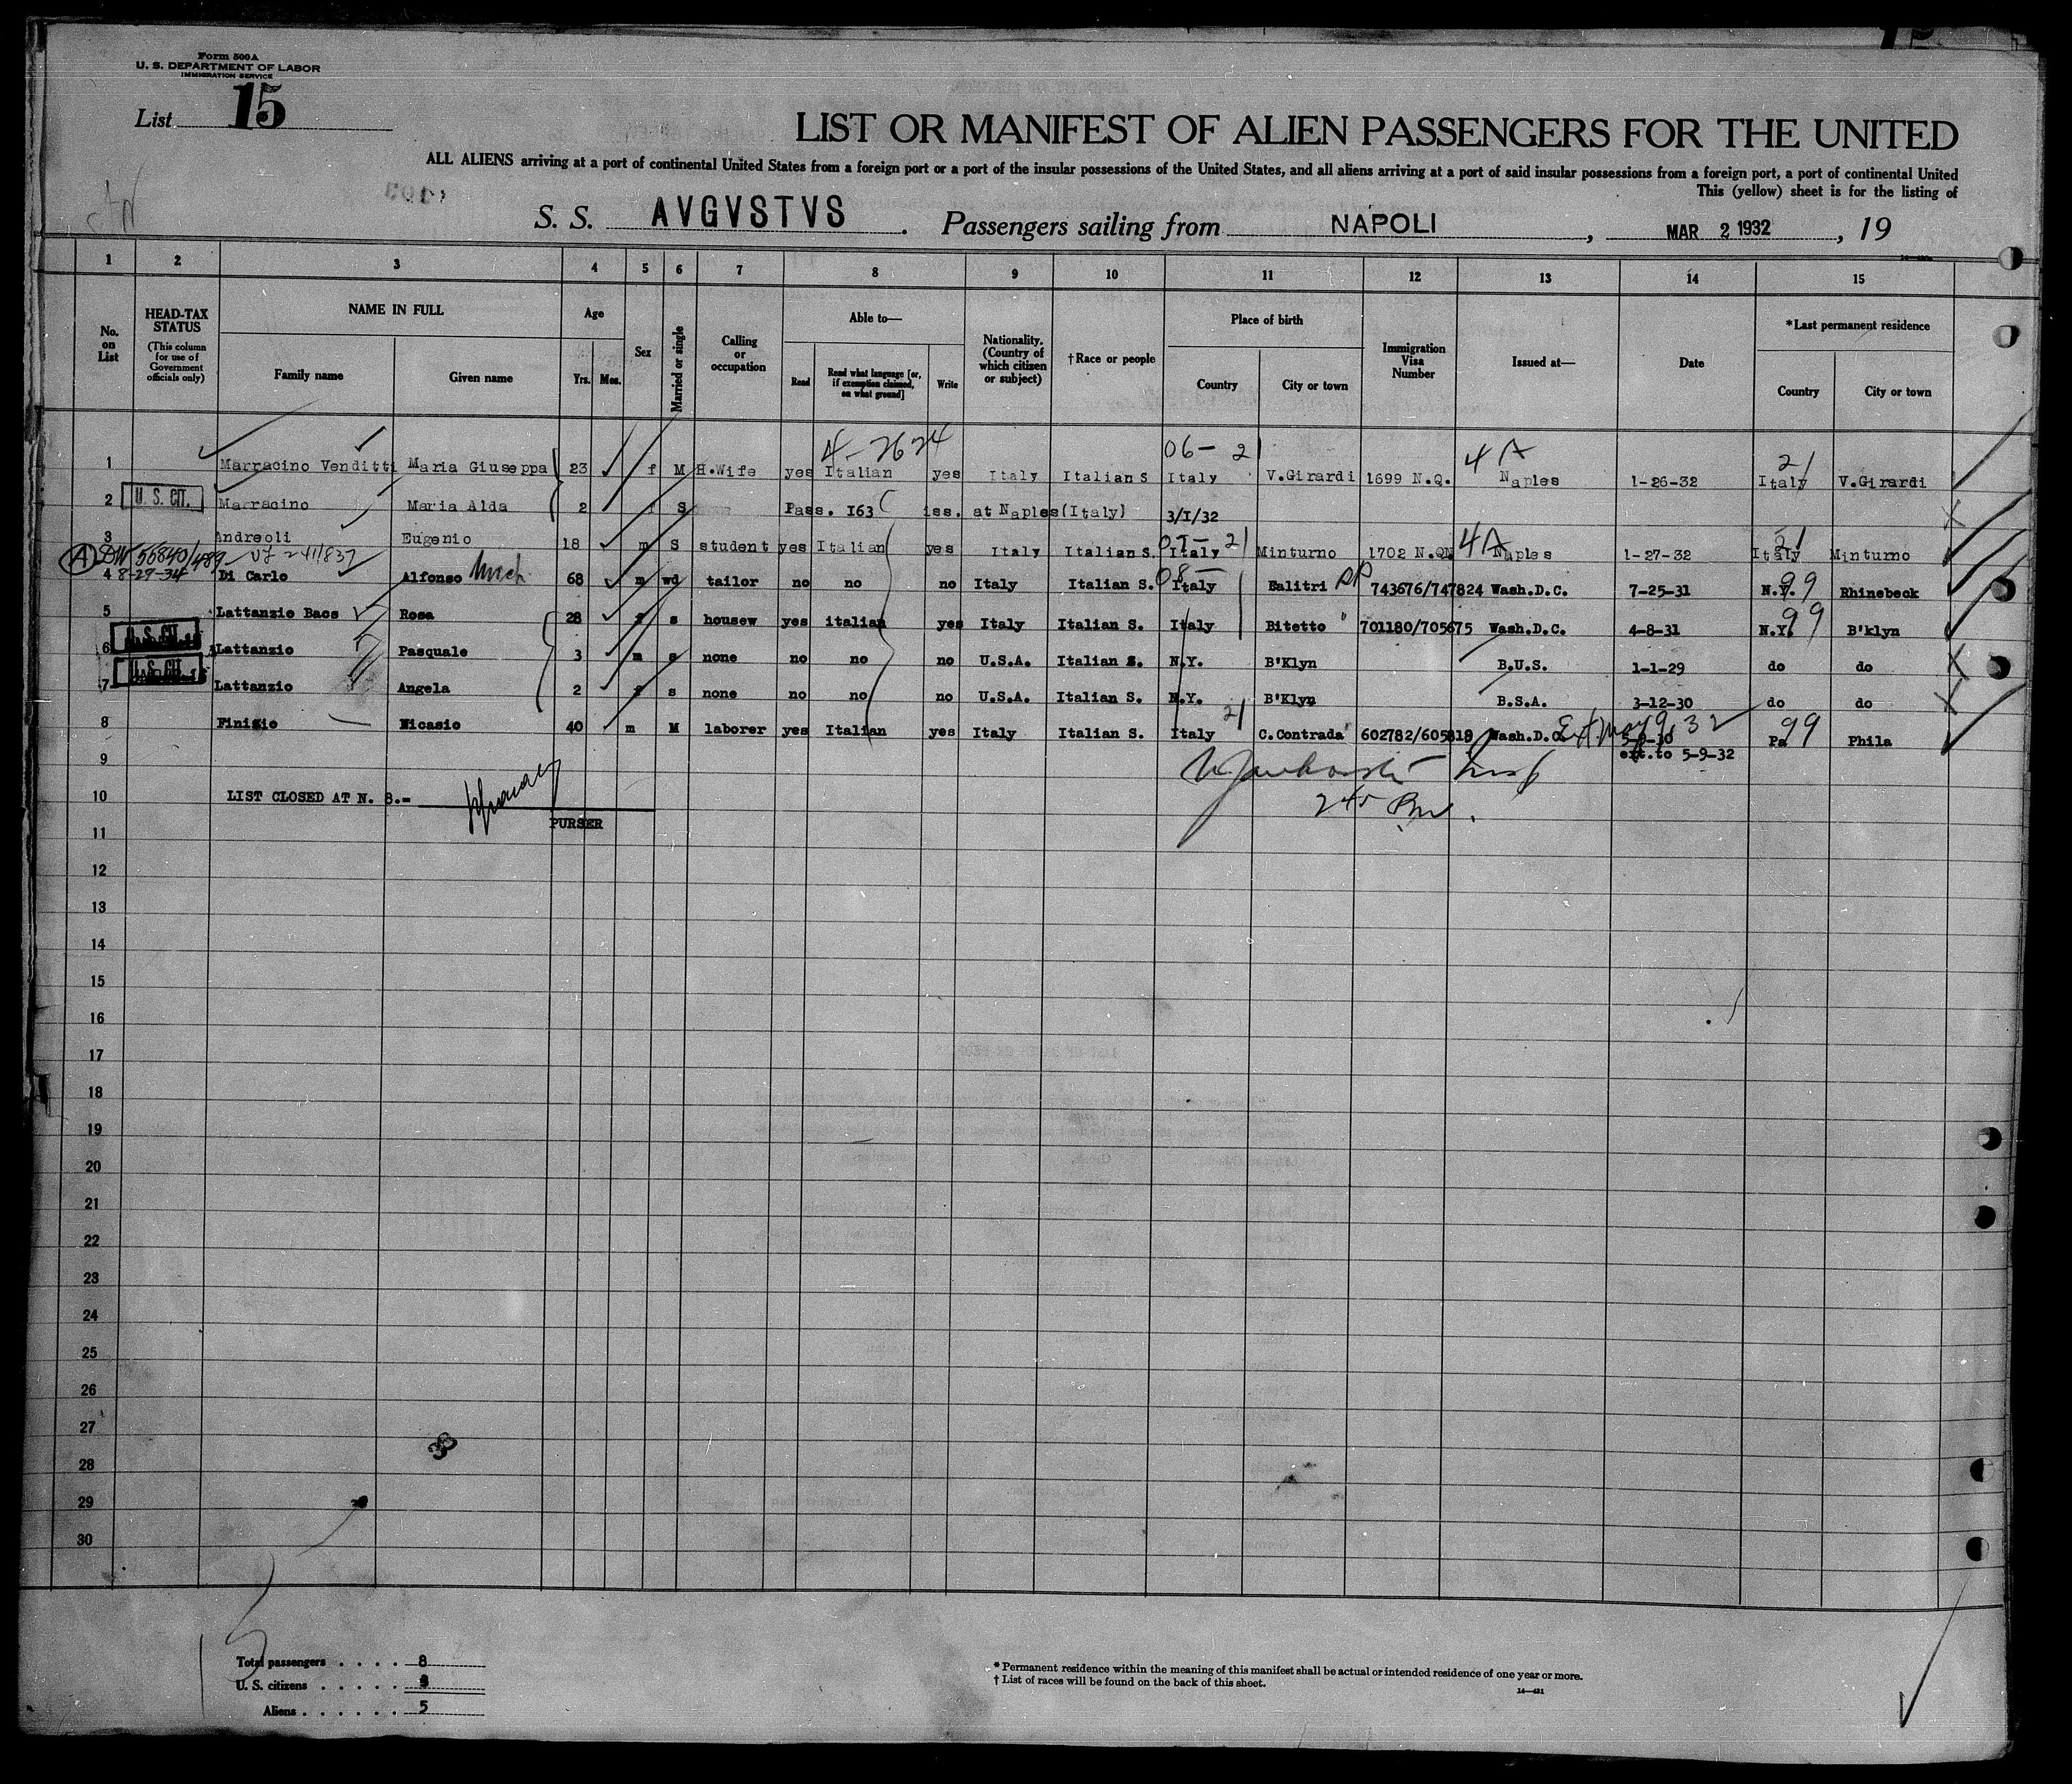 Form 500A
U. S. DEPARTMENT OF LABOR
IMMIGRATION SERVICE
List 15
LIST OR MANIFEST OF ALIEN PASSENGERS FOR THE UNITED
ALL ALIENS arriving at a port of continental United States from a foreign port or a port of the insular possessions of the United States, and all aliens arriving at a port of said insular possessions from a foreign port, a port of continental United
This (yellow) sheet is for the listing of
S. S. AVGVSTVS. Passengers sailing from NAPOLI, MAR 2 1932, 19
1 2 3 4 5 6 7 8 9 10 11 12 13 14 15
No. on List
HEAD-TAX STATUS
(This column for use of Government officials only)
NAME IN FULL
Family name
Given name
Age
Yrs.
Mos.
Sex
Married or single
Calling or occupation
Able to—
Read
Read what language [or, if exemption claimed, on what ground]
Write
Nationality. (Country of which citizen or subject)
†Race or people
Place of birth
Country
City or town
Immigration Visa Number
Issued at—
Date
*Last permanent residence
Country
City or town
4-2624 06- 21 4A 21
1 Marracino Venditti Maria Giuseppa 23 f M H.Wife yes Italian yes Italy Italian S Italy V.Girardi 1699 N.Q. Naples 1-26-32 Italy V.Girardi
2 U.S. CIT. Marracino Maria Alda 2 f S Pass. 163 iss. at Naples(Italy) 3/1/32
3 Andreoli Eugenio 18 m S student yes Italian yes Italy Italian S. Italy 21 Minturno 1702 N.QN 4A Naples 1-27-32 Italy Minturno
A 56840/489 VJ 241837
8-29-34
4 Di Carlo Alfonso 68 m wd tailor no no no Italy Italian S. 08- Italy Ealitri 743676/747824 Wash.D.C. 7-25-31 N.Y. 99 Rhinebeck
5 Lattanzio Bacs Rosa 28 f s housew yes italian yes Italy Italian S. Italy Bitetto " 701180/705675 Wash.D.C. 4-8-31 N.Y. 99 B'klyn
6 U.S. CIT. Lattanzio Pasquale 3 m s none no no no U.S.A. Italian S. N.Y. B'Klyn B.U.S. 1-1-29 do do
7 U.S. CIT. Lattanzio Angela 2 f s none no no no U.S.A. Italian S. N.Y. B'Klyn B.S.A. 3-12-30 do do
8 Finizio Nicasio 40 m M laborer yes Italian yes Italy Italian S. Italy 21 C.Contrada 602782/605819 Wash.D.C. Ext. May 9, 32 5-9-30 Pa 99 Phila
9 ext.to 5-9-32
10 LIST CLOSED AT N. 8.=
245 PM.
PURSER
11
12
13
14
15
16
17
18
19
20
21
22
23
24
25
26
27
28
29
30
Total passengers . . . . 8
U. S. citizens . . . . .
Aliens . . . . . . 5
* Permanent residence within the meaning of this manifest shall be actual or intended residence of one year or more.
† List of races will be found on the back of this sheet.
14—421